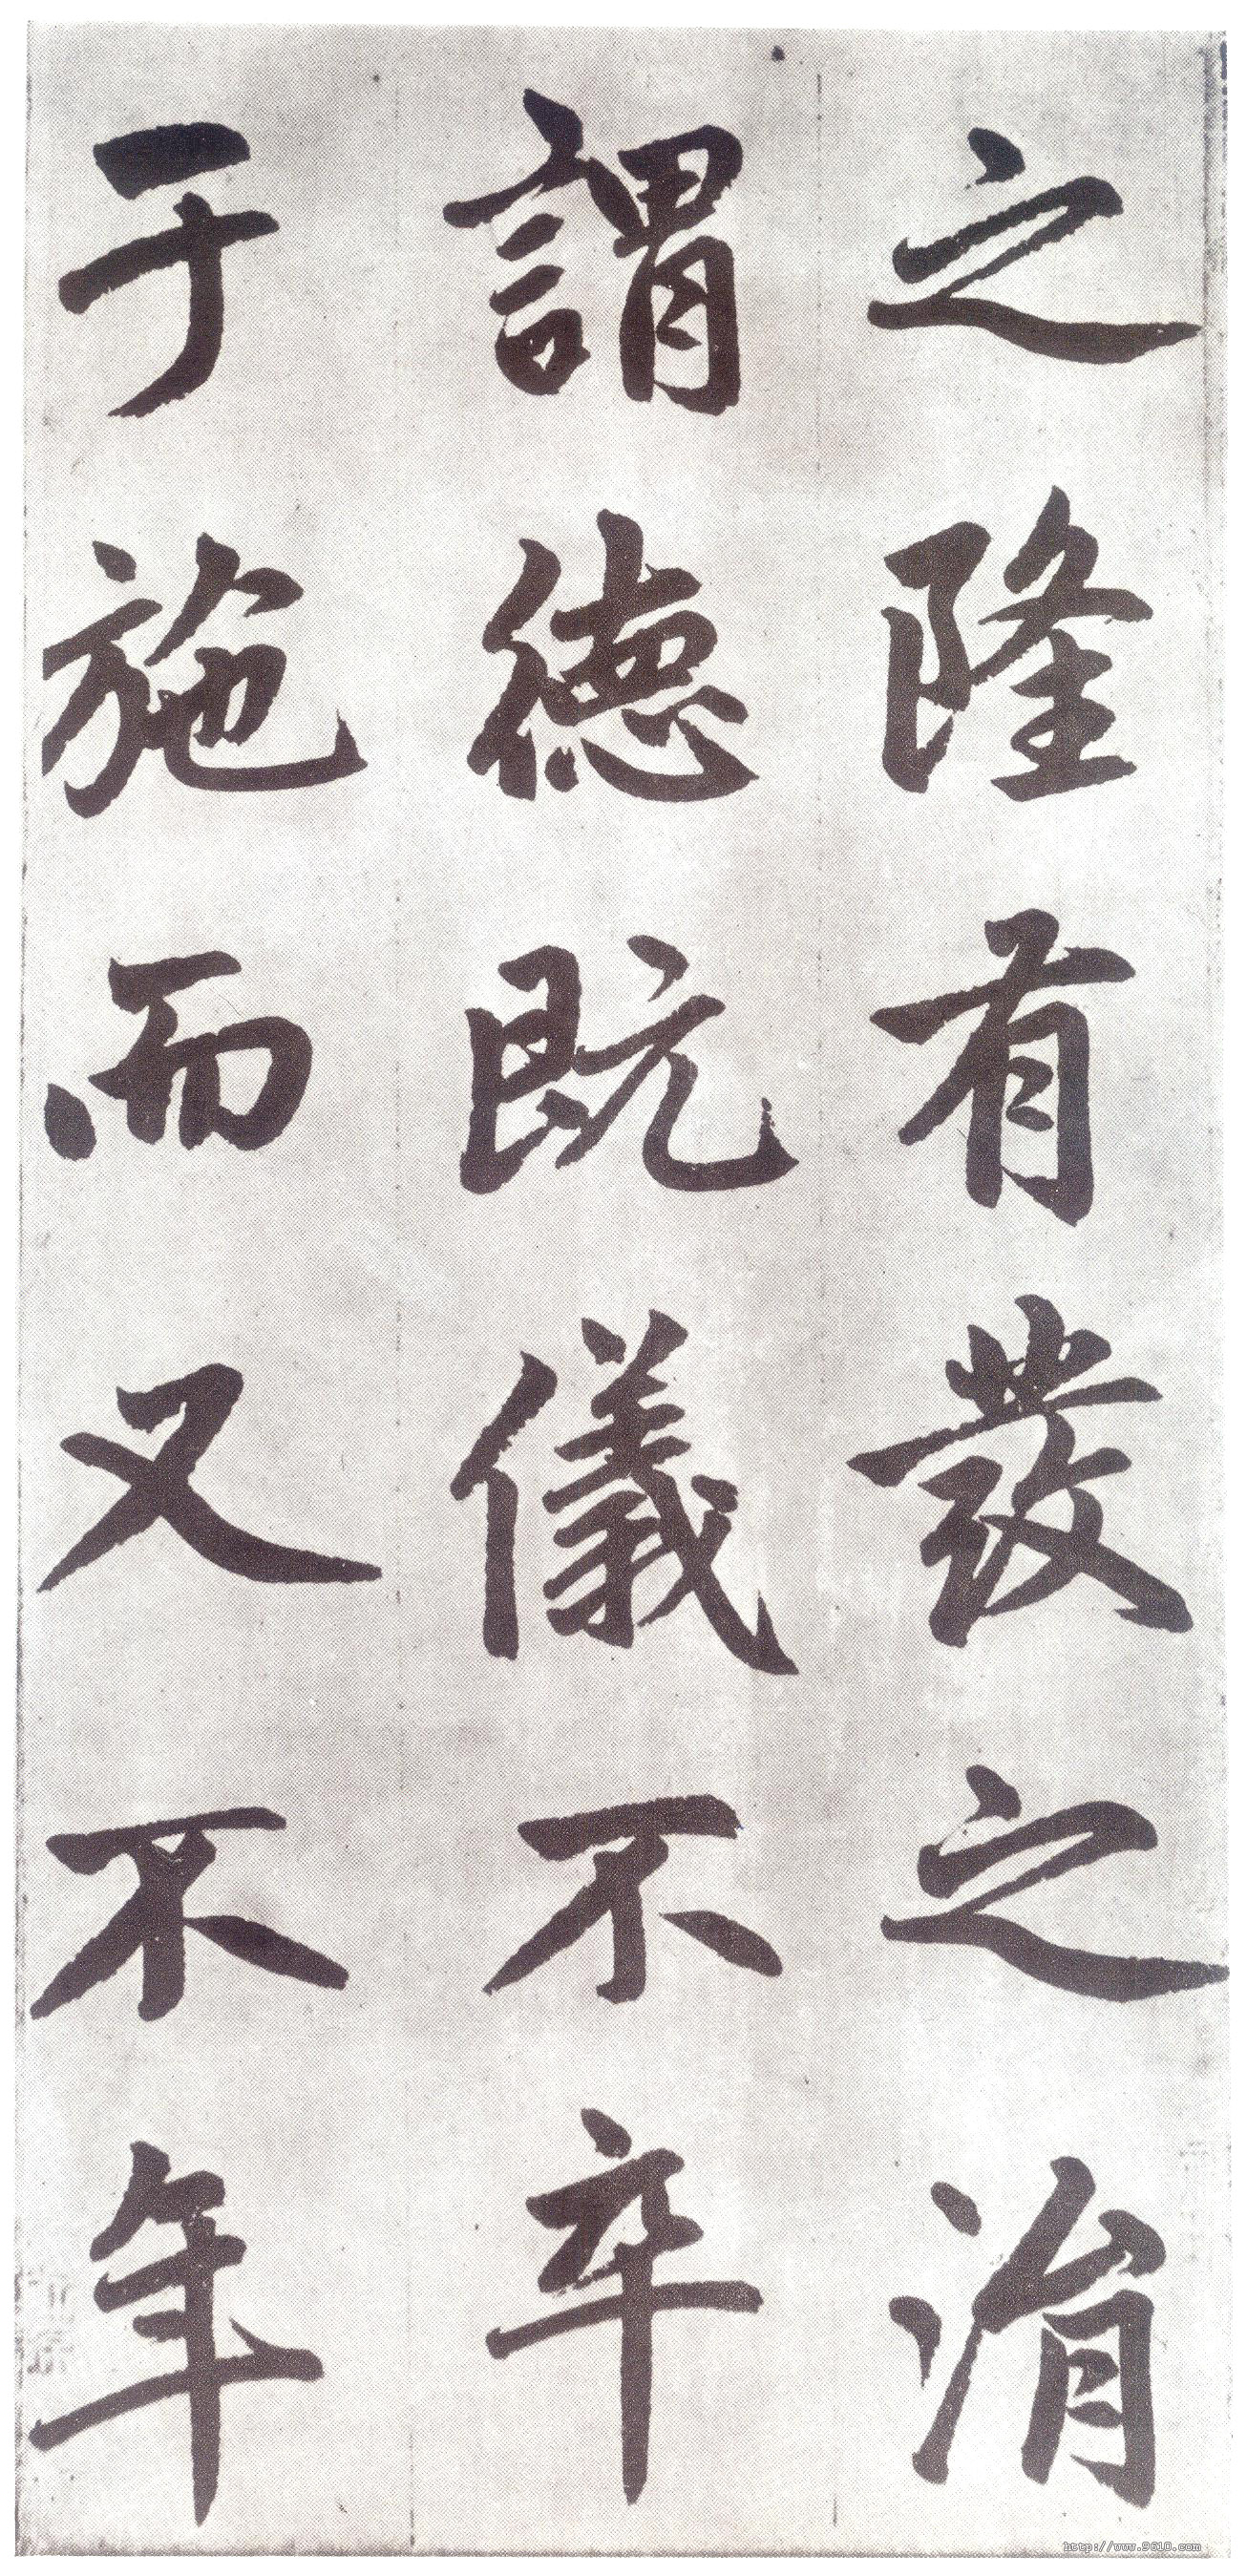 之隆有發之滑
謂德既儀不卒
于施而又不年
http://www.9610.com